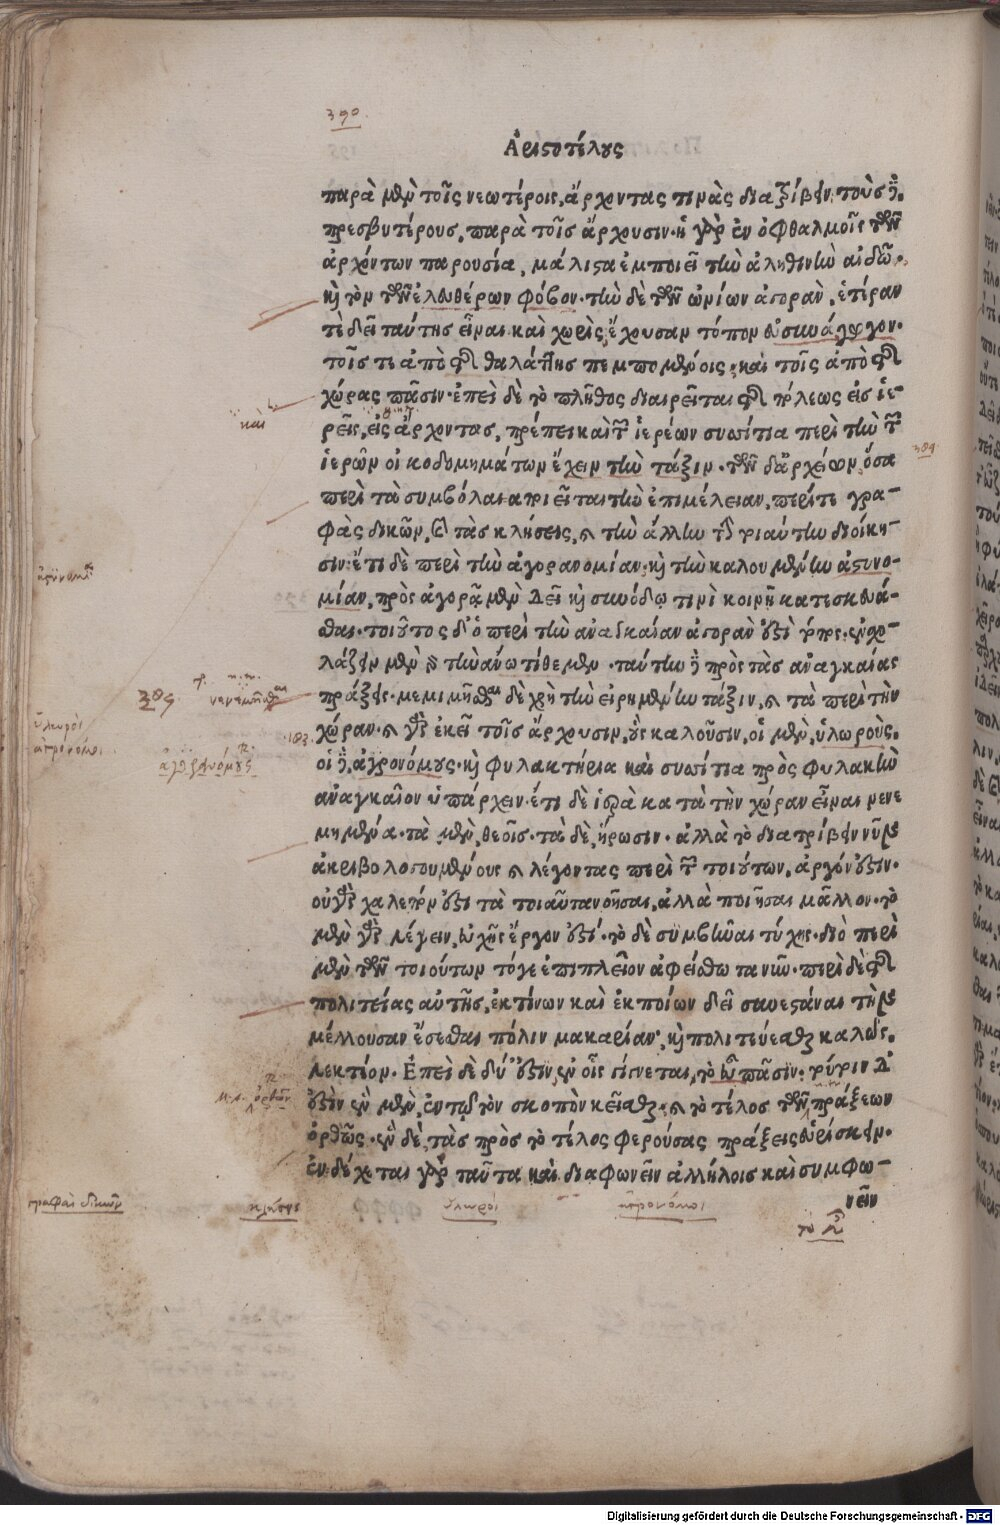 390
Ἀριστοτέλους
παρὰ μὲν τοῖς νεωτέροις, ἄρχοντας τινὰς διατρίβειν. τοὺς δὲ
πρεσβυτέρους, παρὰ τοῖς ἄρχουσιν. ἡ γὰρ ἐν ὀφθαλμοῖς τῶν
ἀρχόντων παρουσία, μάλιστα ἐμποιεῖ τὴν ἀληθινὴν αἰδῶ,
καὶ τὸν τῶν ἐλευθέρων φόβον. τὴν δὲ τῶν ὠνίων ἀγορὰν, ἑτέραν
τὲ δεῖ ταύτης εἶναι καὶ χωρὶς, ἔχουσαν τόπον εὐσυνάγωγον.
τοῖς τε ἀπὸ τῆς θαλάττης πεμπομένοις, καὶ τοῖς ἀπὸ τῆς
χώρας πᾶσιν. ἐπεὶ δὲ τὸ πλῆθος διαιρεῖται τῆς πόλεως εἰς ἱε-
ρεῖς, εἰς ἄρχοντας, πρέπει καὶ τῶν ἱερέων συσσίτια περὶ τὴν τῶν
ἱερῶν οἰκοδομημάτων ἔχειν τὴν τάξιν. τῶν δ'ἀρχείων, ὅσα
περὶ τὰ συμβόλαια ποιεῖται τὴν ἐπιμέλειαν, περί τε γρα-
φὰς δικῶν, καὶ τὰς κλήσεις, καὶ τὴν ἄλλην τὴν τοιαύτην διοίκη-
σιν. ἔτι δὲ περὶ τὴν ἀγορανομίαν. καὶ τὴν καλουμένην ἀστυνο-
μίαν, πρὸς ἀγορᾷ μὲν δεῖ καὶ συνόδῳ τινὶ κοινῇ κατεσκευά-
σθαι. τοιοῦτος δ' ὁ περὶ τὴν ἀναγκαίαν ἀγορὰν ἐστὶ τόπος. ἐνσχο-
λάζειν μὲν γὰρ τὴν ἄνω τίθεμεν. ταύτην δὲ πρὸς τὰς ἀναγκαίας
πράξεις. μεμιμῆσθαι δὲ χρὴ τὴν εἰρημένην τάξιν, καὶ τὰ περὶ τὴν
χώραν. καὶ γὰρ ἐκεῖ τοῖς ἄρχουσιν, οὓς καλοῦσιν, οἱ μὲν, ὑλωροὺς.
οἱ δὲ, ἀγρονόμους. καὶ φυλακτήρια καὶ συσσίτια πρὸς φυλακὴν
ἀναγκαῖον ὑπάρχειν. ἔτι δὲ ἱερὰ κατὰ τὴν χώραν εἶναι νενε
μημένα. τὰ μὲν, θεοῖς. τὰ δὲ, ἥρωσιν. ἀλλὰ τὸ διατρίβειν νῦν
ἀκριβολογουμένους καὶ λέγοντας περὶ τῶν τοιούτων, ἀργόν ἐστιν.
οὐ γὰρ χαλεπόν ἐστι τὰ τοιαῦτα νοῆσαι, ἀλλὰ ποιῆσαι μᾶλλον. τὸ
μὲν γὰρ λέγειν, εὐχῆς ἔργον ἐστί. τὸ δὲ συμβῆναι τύχης. διὸ περὶ
μὲν τῶν τοιούτων τόγε ἐπιπλεῖον ἀφείσθω τανῦν. περὶ δὲ τῆς
πολιτείας αὐτῆς, ἐκτίνων καὶ ἐκποίων δεῖ συνεστάναι τὴν
μέλλουσαν ἔσεσθαι πόλιν μακαρίαν, καὶ πολιτεύεσθαι καλῶς,
λεκτέον. Ἐπεὶ δὲ δύ' ἐστὶν, ἐν οἷς γίγνεται, τὸ εὖ πᾶσιν. τούτοιν δ'
ἐστὶν ἓν μὲν, ἐν τῷ τὸν σκοπὸν κεῖσθαι, καὶ τὸ τέλος τῶν πράξεων
ὀρθῶς. ἓν δὲ, τὰς πρὸς τὸ τέλος φερούσας πράξεις εὑρίσκειν.
ἐνδέχεται γὰρ ταῦτα καὶ διαφωνεῖν ἀλλήλοις καὶ συμφω-
νεῖν
καὶ
389
νενεμῆσθαι
ὑλωροὶ
ἀγρονόμοι
183
γραφαὶ δικῶν
κλήσεις
ὑλωροί
ἀγρονόμοι